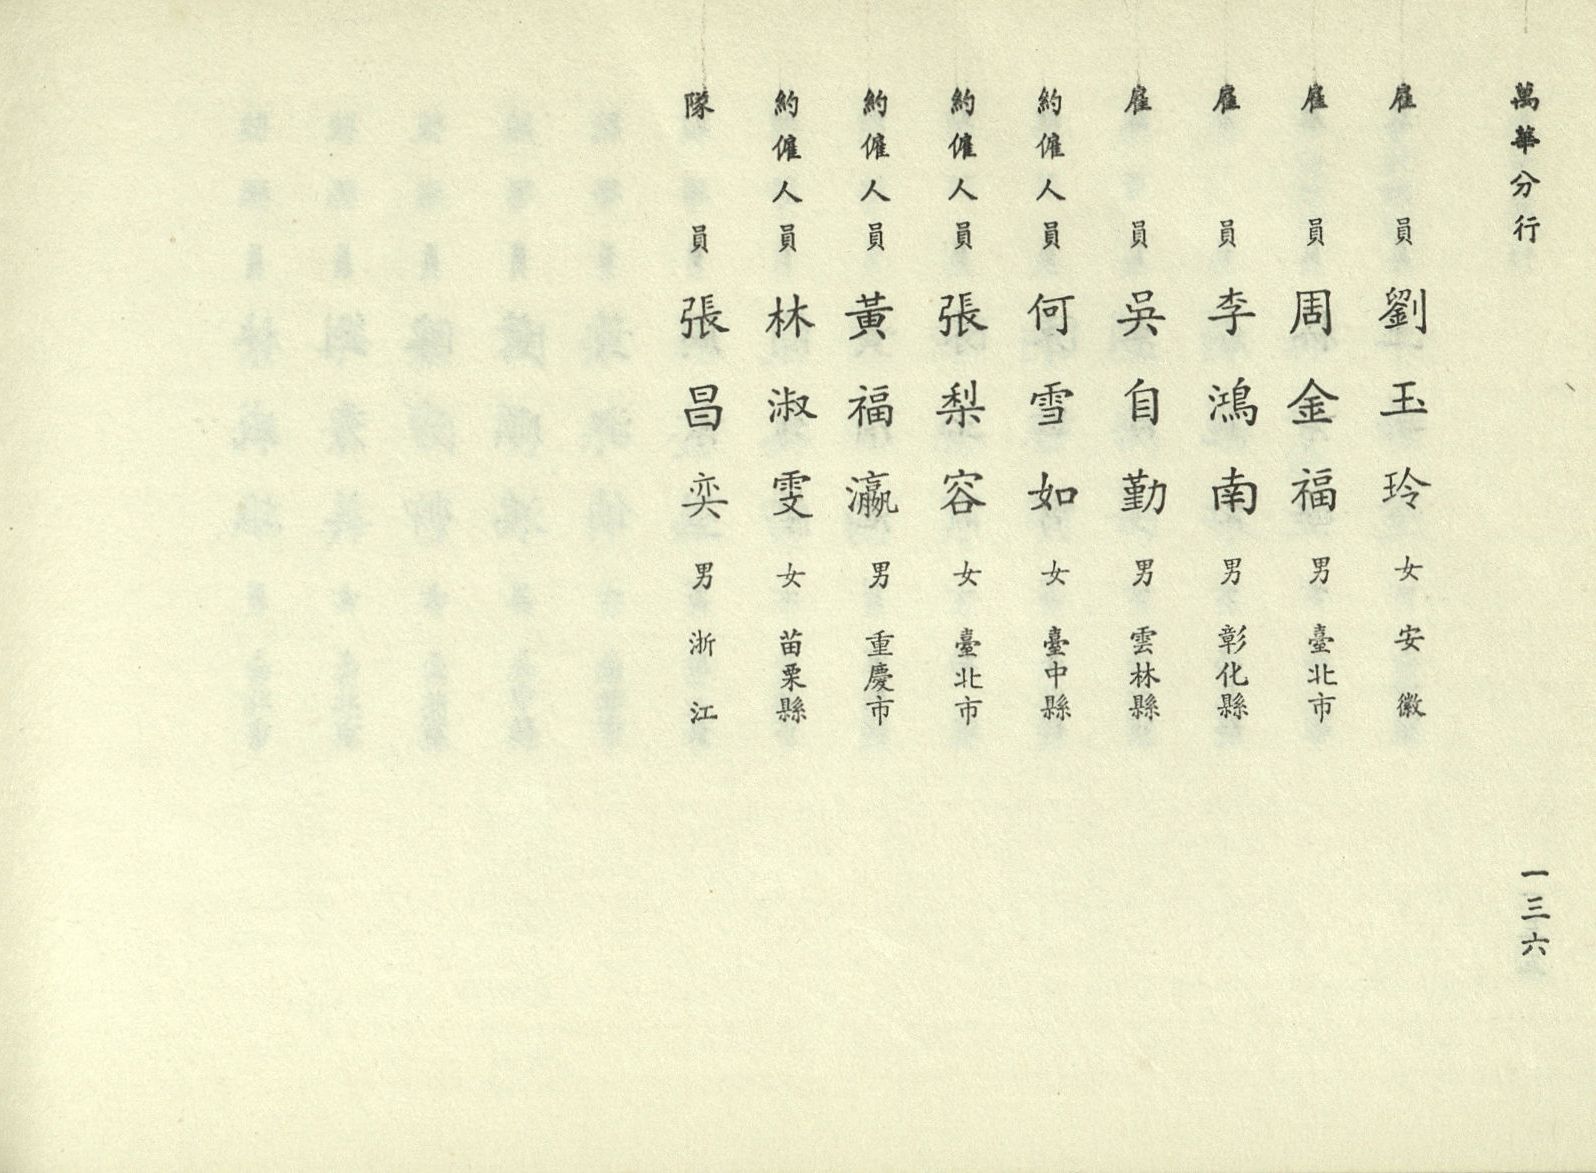 萬華分行
一三六
雇員 劉玉玲 女 安徽
雇員 周金福 男 臺北市
雇員 李鴻南 男 彰化縣
雇員 吳自勤 男 雲林縣
約僱人員 何雪如 女 臺中縣
約僱人員 張梨容 女 臺北市
約僱人員 黃福瀛 男 重慶市
約僱人員 林淑雯 女 苗栗縣
隊員 張昌奕 男 浙江